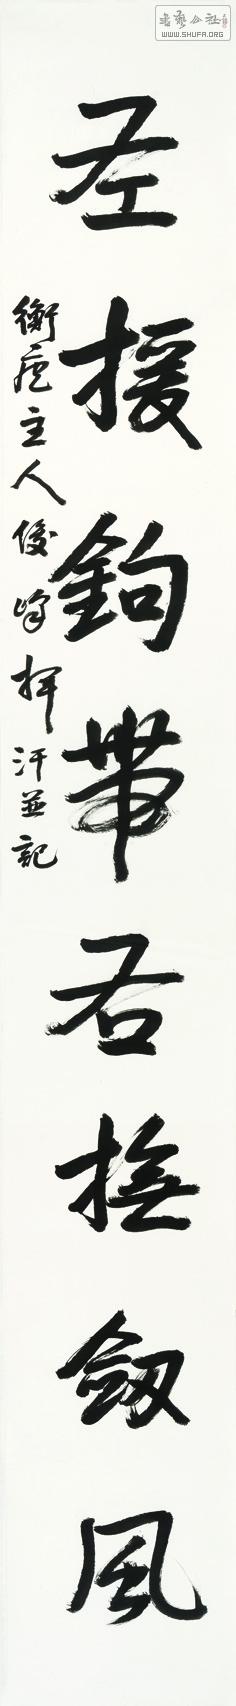 左援鉤帶右撫劔風
衡庐主人俊峰挥汗並記
書藝公社
WWW.SHUFA.ORG